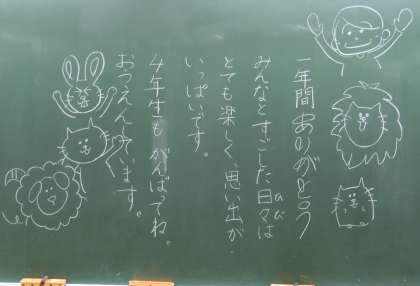 一年間ありがとう
みんなとすごした日々は
ひび
とても楽しく、思い出が
いっぱいです。
4年生もがんばってね。
おうえんしています。